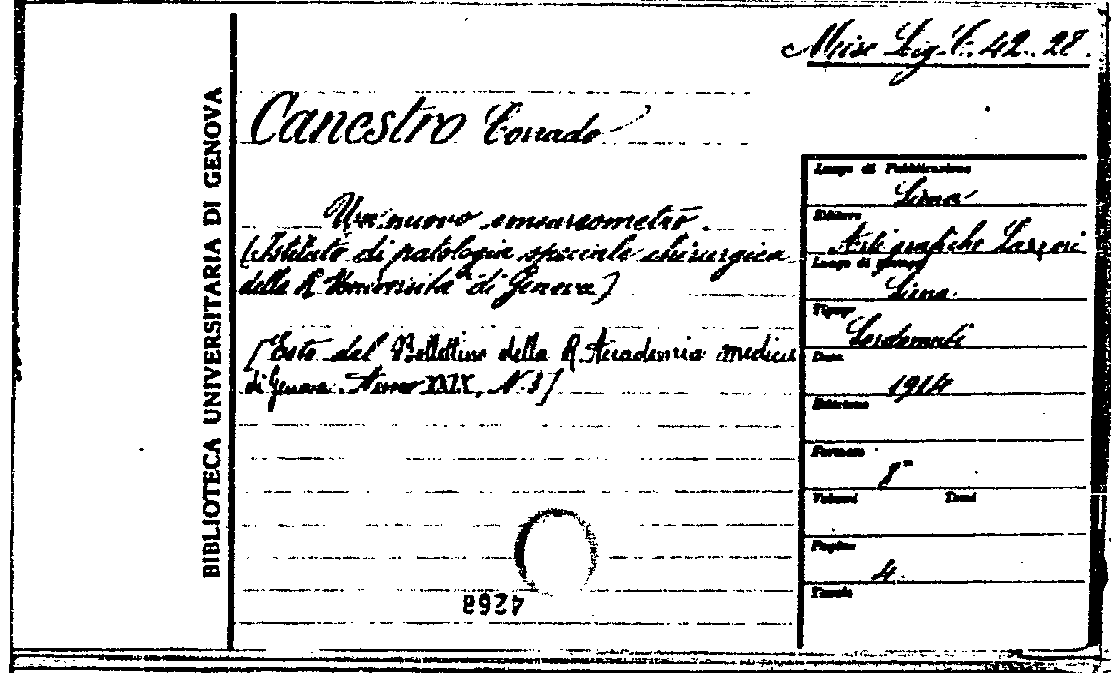 Misc Lig. C. 42. 28.
BIBLIOTECA UNIVERSITARIA DI GENOVA
Canestro Corrado
Un nuovo
(Istituto di patologia speciale chirurgica
della R. Università di Genova)
[Estr. dal Bollettino della R. Accademia medica
di Genova. Anno XXIX, N. 3]
Luogo di Pubblicazione
Siena
Editore
Arti grafiche Lazzeri
Luogo di stampa
Siena
Tipogr.
Data
1914
Edizione
Formato
8°
Volumi Tomi
Pagine
4.
Tavole
4268